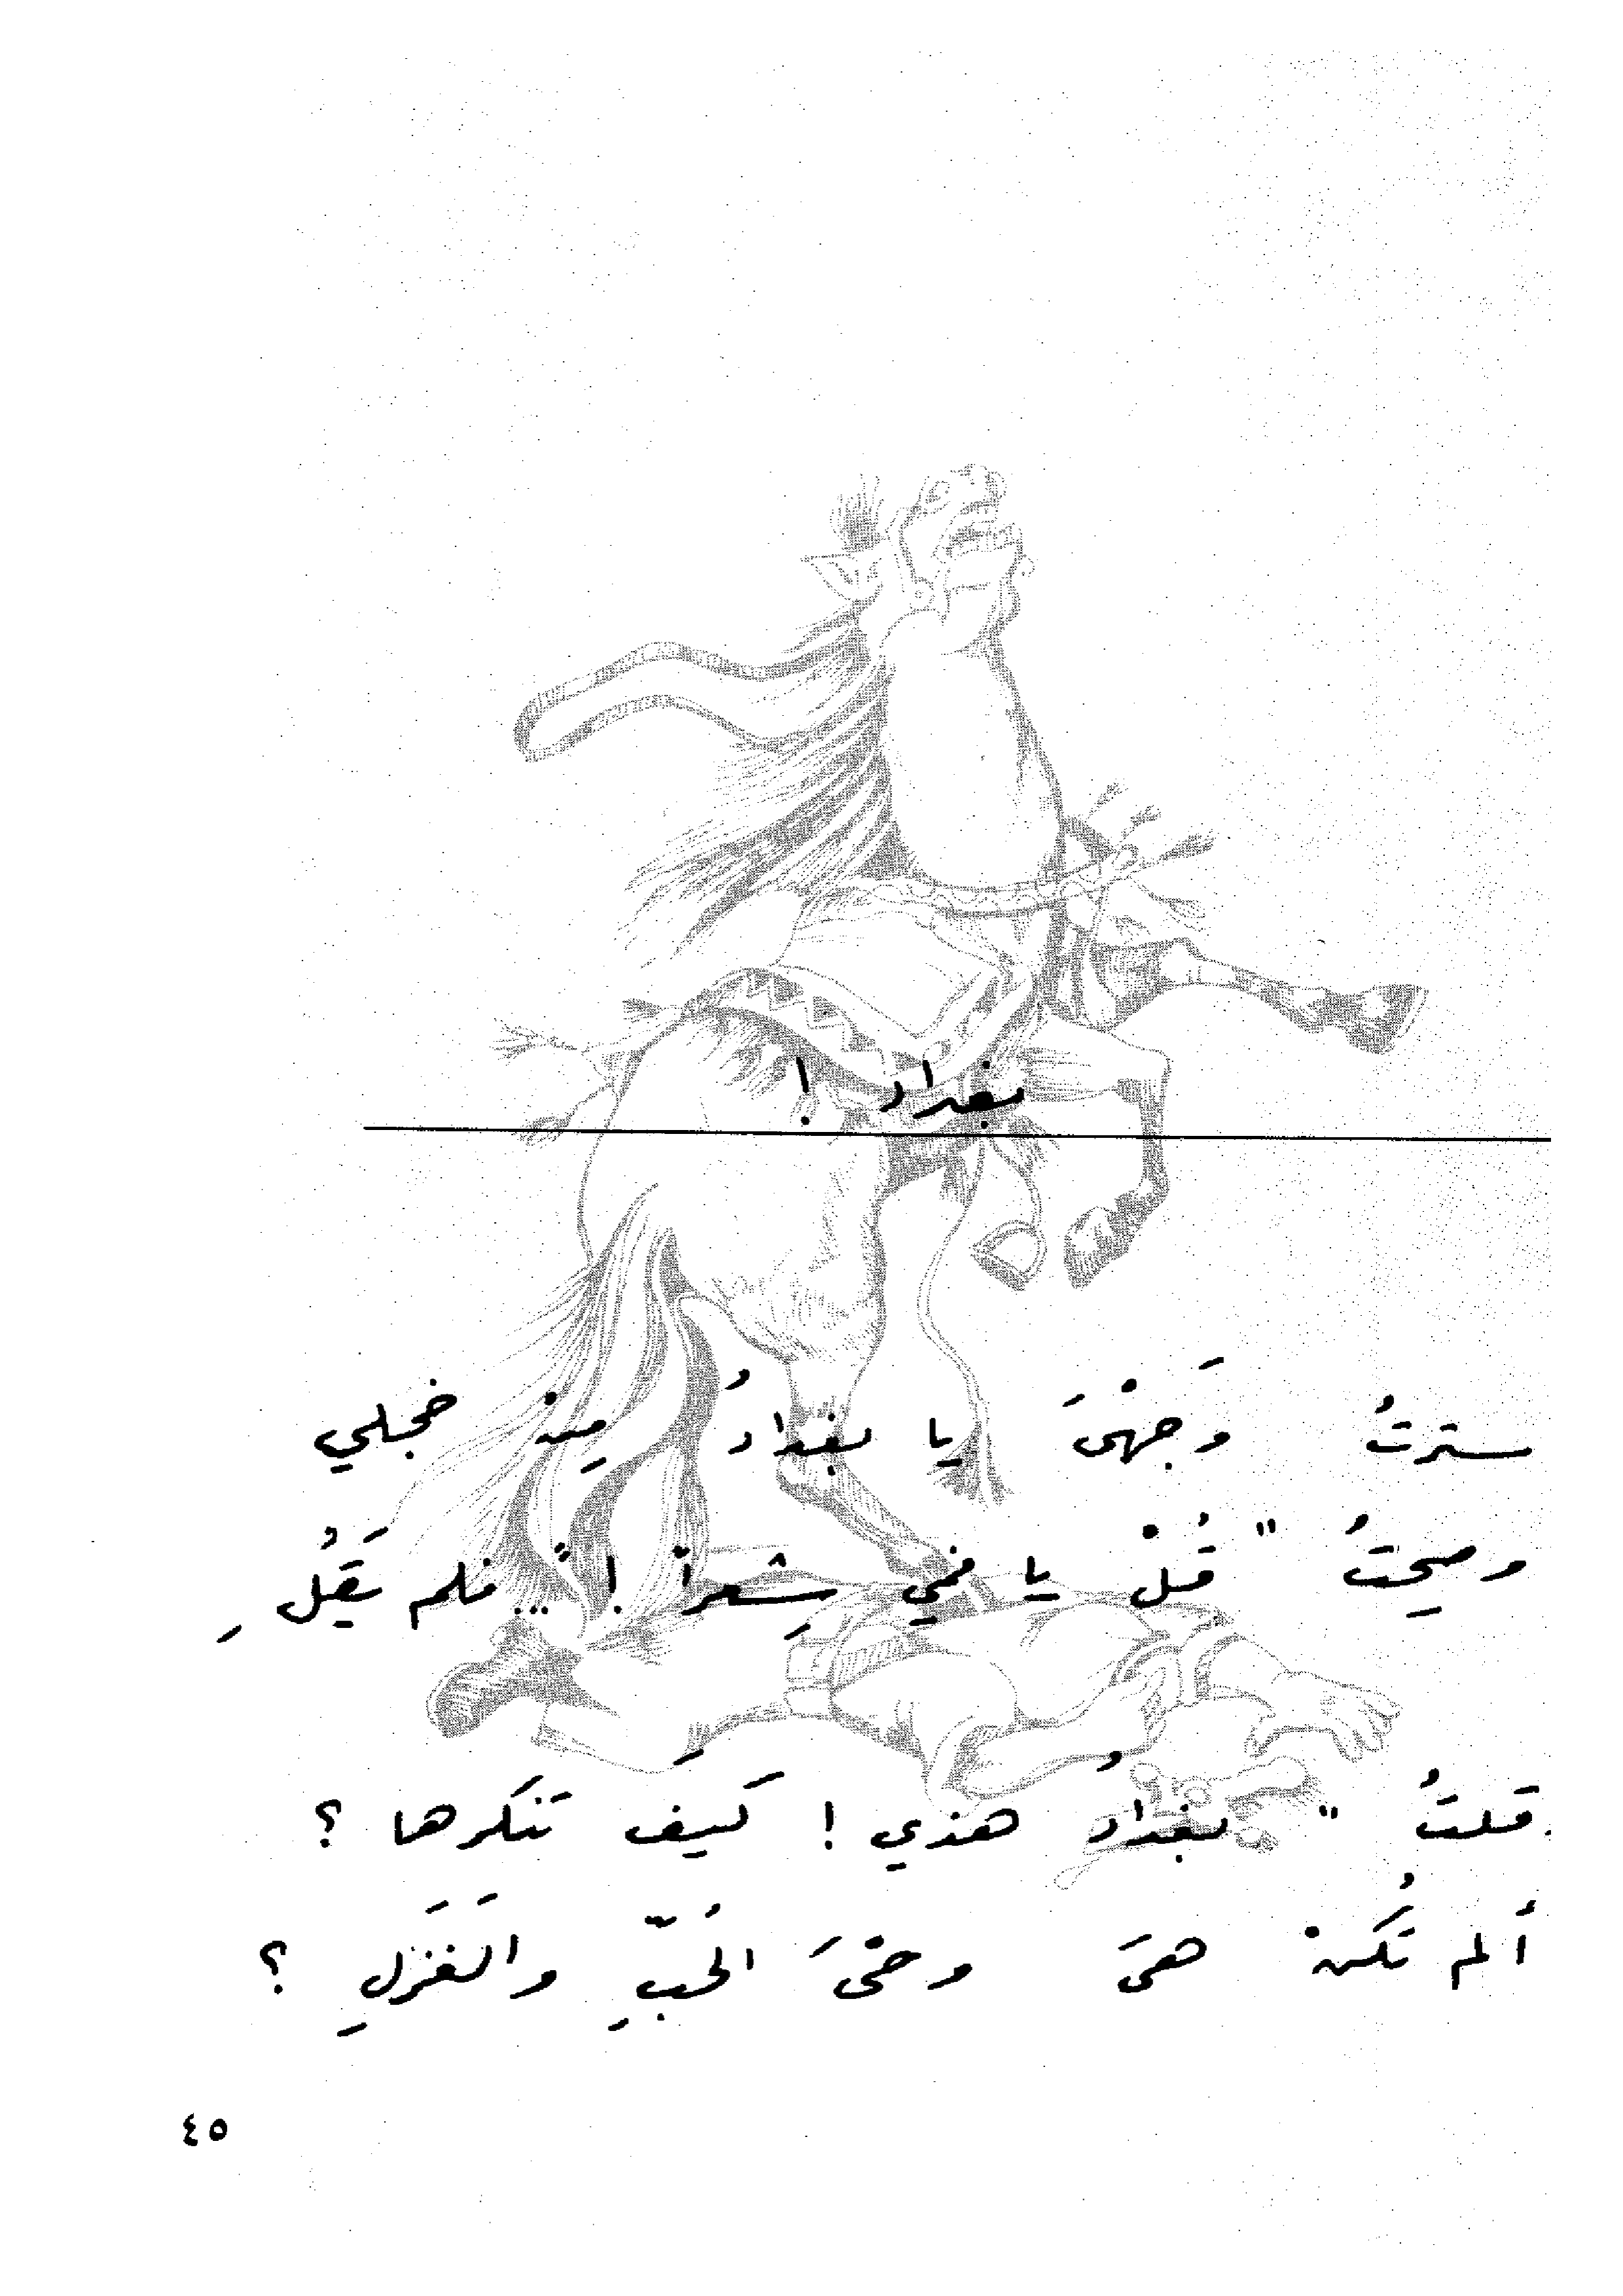 بغداد !
سترتُ وَجْهيَ يا بغدادُ مِنْ خجلي
وصِحتُ " قُلْ يا فمي شِعراً ! " .. فلم يَقُلِ
قلتُ " بغدادُ هذي ! كَيفَ تَنكرها ؟
ألم تَكُنْ هيَ وحْيَ الحُبِّ والغَزَلِ ؟
٤٥